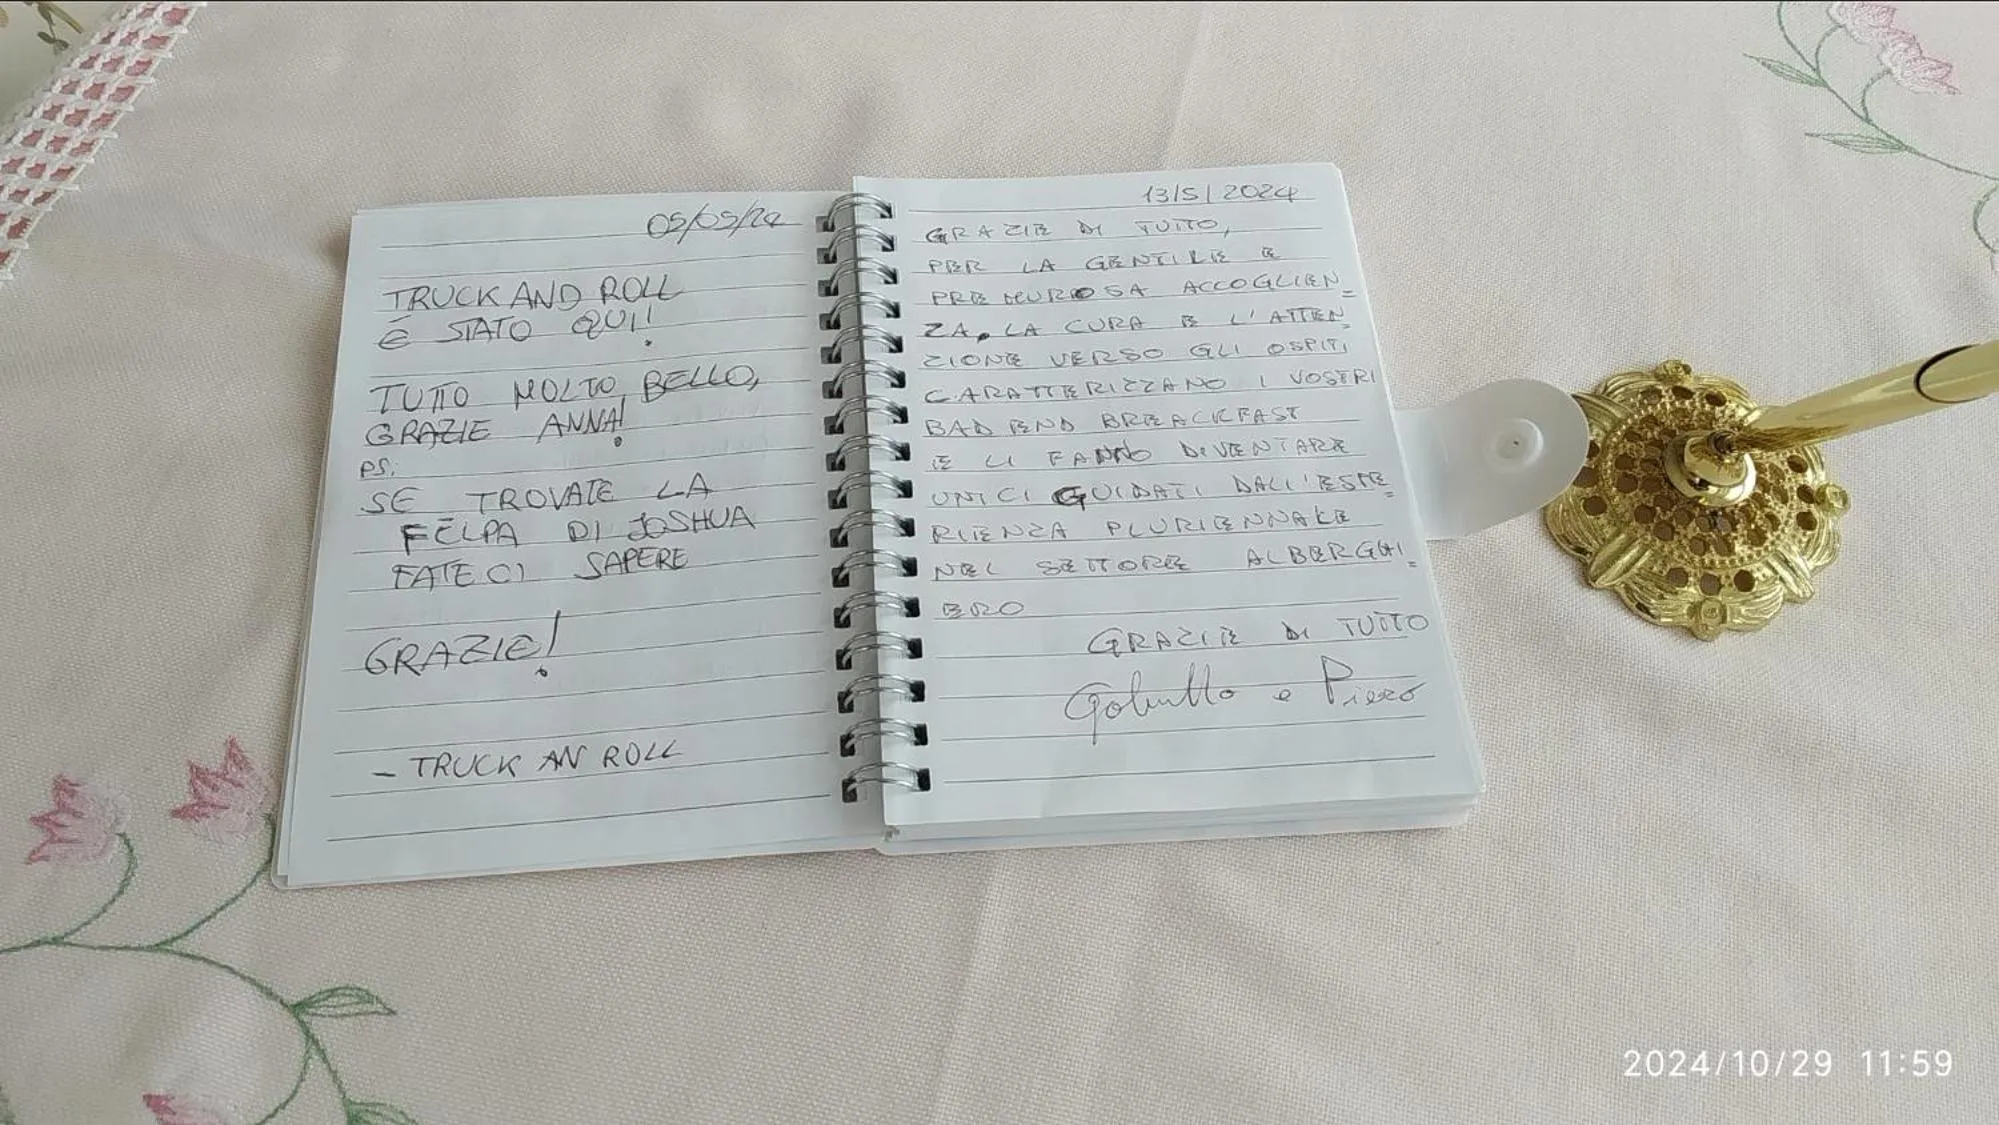 05/05/24
TRUCK AND ROLL
È STATO QUI!
TUTTO MOLTO BELLO,
GRAZIE ANNA!
PS:
SE TROVATE LA
FELPA DI JOSHUA
FATECI SAPERE
GRAZIE!
- TRUCK AN ROLL
13/5/2024
GRAZIE DI TUTTO,
PER LA GENTILE E
PREMUROSA ACCOGLIEN=
ZA, LA CURA E L'ATTEN=
ZIONE VERSO GLI OSPITI
CARATTERIZZANO I VOSTRI
BAD END BREACKFAST
E LI FANNO DIVENTARE
UNICI GUIDATI DALL'ESPE=
RIENZA PLURIENNALE
NEL SETTORE ALBERGHI=
ERO
GRAZIE DI TUTTO
e Piero
2024/10/29 11:59